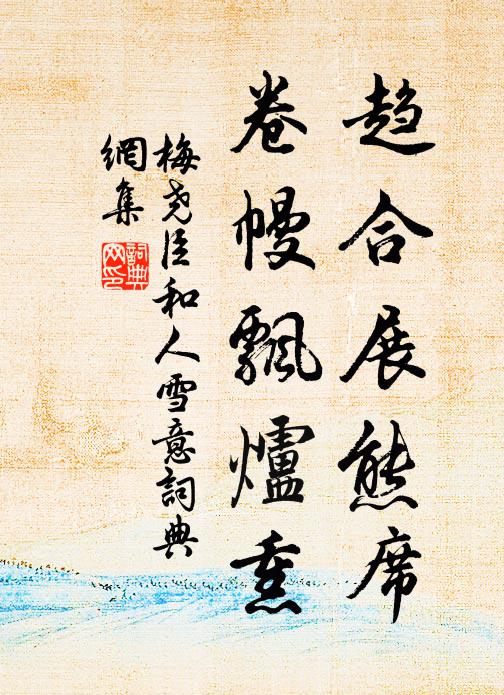 趋合展熊席
卷幔飘爐熏
梅尧臣和人雪意詞典
網集
詞典
网印